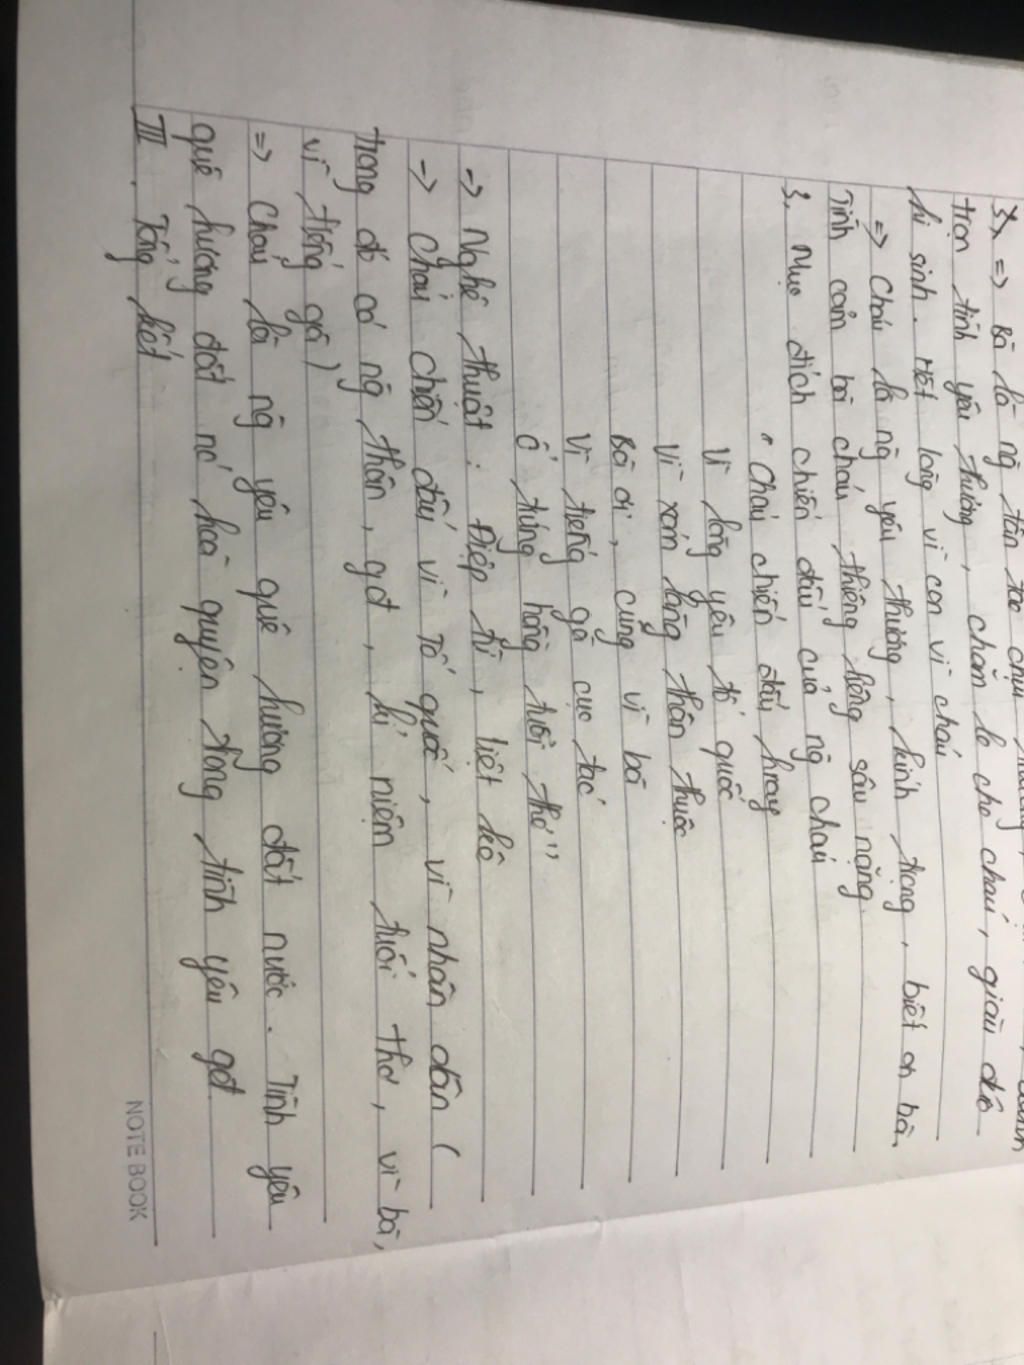 => Bà là ng tần tảo chịu
trọn tình yêu thương, chăm lo cho cháu, giàu đức
hi sinh. Hết lòng vì con vì cháu
=> Cháu là ng yêu thương, kính trọng, biết ơn bà.
Tình cảm bà cháu thiêng liêng sâu nặng.
3. Mục đích chiến đấu của ng cháu
"Cháu chiến đấu hnay
Vì lòng yêu tổ quốc
Vì xóm làng thân thuộc
Bà ơi, cũng vì bà
Vì tiếng gà cục tác
Ổ trứng hồng tuổi thơ"
-> Nghệ thuật: Điệp từ, liệt kê
-> Cháu chiến đấu vì Tổ quốc, vì nhân dân (
trong đó có ng thân, gđ, kỉ niệm tuổi thơ, vì bà,
vì tiếng gà)
=> Cháu là ng yêu quê hương đất nước. Tình yêu
quê hương đất nc hoà quyện trong tình yêu gđ
III. Tổng kết
NOTE BOOK